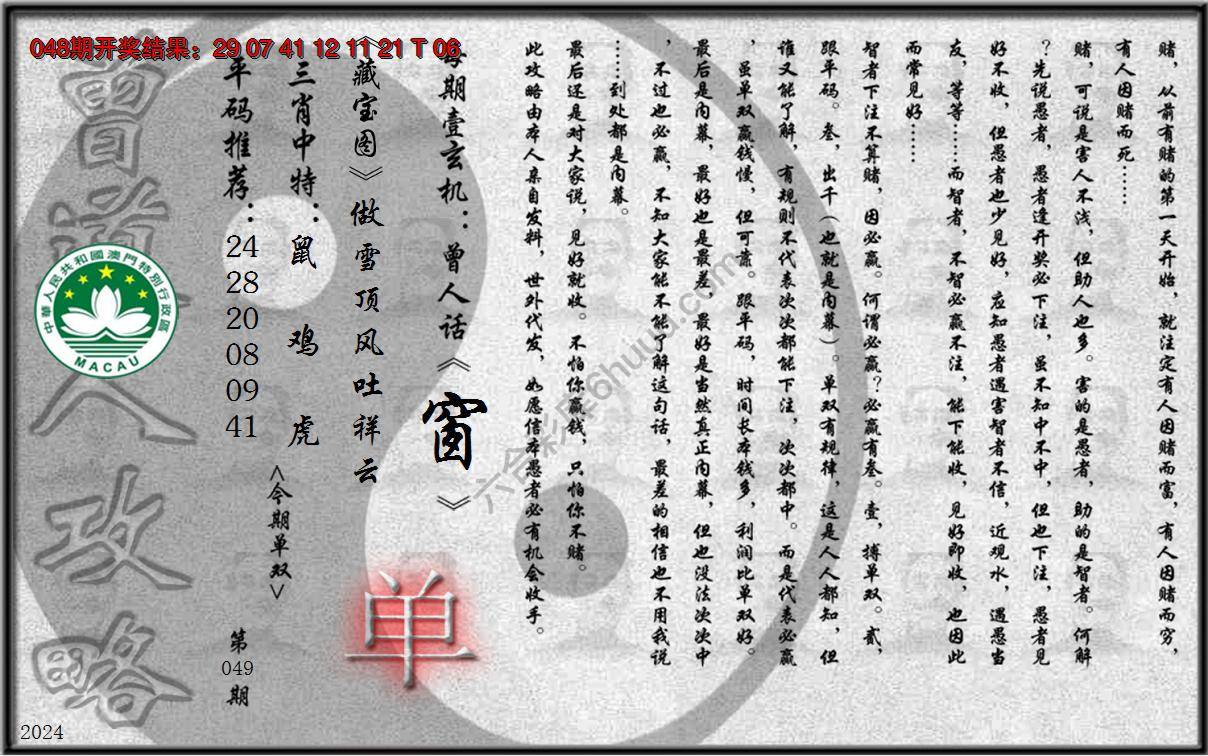 048期开奖结果：29 07 41 12 11 21 T 06
赌，从前有赌的第一天开始，就注定有人因赌而富，有人因赌而穷，
有人因赌而死……
赌，可说是害人不浅，但助人也多。害的是愚者，助的是智者。何解
？先说愚者，愚者逢开奖必下注，虽不知中不中，但也下注，愚者见
好不收，但愚者也少见好，应知愚者遇害智者不信，近观水，遇愚当
友，等等……而智者，不智必赢不注，能下能收，见好即收，也因此
而常见好……
智者下注不算赌，因必赢。何谓必赢？必赢有叁。壹，搏单双。贰，
跟平码。叁，出千（也就是内幕）。单双有规律，这是人人都知，但
谁又能了解，有规则不代表次次都能下注，次次都中。而是代表必赢
，虽单双赢钱慢，但可靠。跟平码，时间长本钱多，利润比单双好。
最后是内幕，最好也是最差，最好是当然真正内幕，但也没法次次中
，不过也必赢，不知大家能不能了解这句话，最差的相信也不用我说
……到处都是内幕。
最后还是对大家说，见好就收。不怕你赢钱，只怕你不赌。
此攻略由本人亲自发料，世外代发，如愿信本愚者必有机会收手。
每期壹玄机：曾人话《窗》
《藏宝图》做雪顶风吐祥云
三肖中特：鼠 鸡 虎
<今期单双>
单
平码推荐：
24
28
20
08
09
41
第
049
期
曾道人攻略
中華人民共和國澳門特別行政區
MACAU
六合彩库6huuu.com
2024